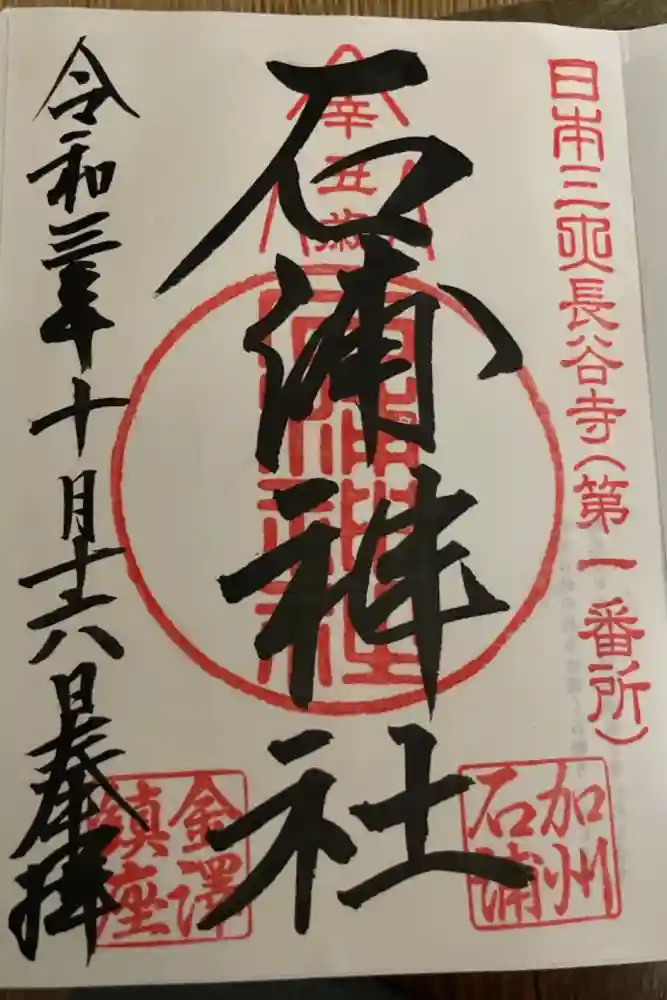 日本三大長谷寺(第一番所)
加州
石浦
辛丑歳
石浦神社
石浦神社
金澤
鎮座
令和三年十月十六日奉拝